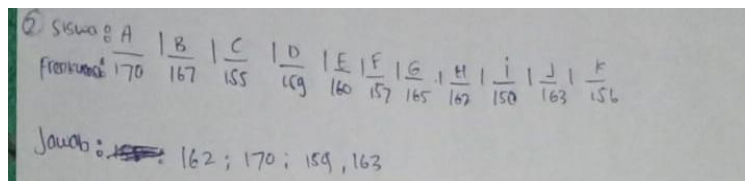 ② Siswa : A | B | C | D | E | F | G | H | i | J | K
Frekuensi 170 167 155 159 160 157 165 162 150 163 156
Jawab : 162 ; 170 ; 159 , 163